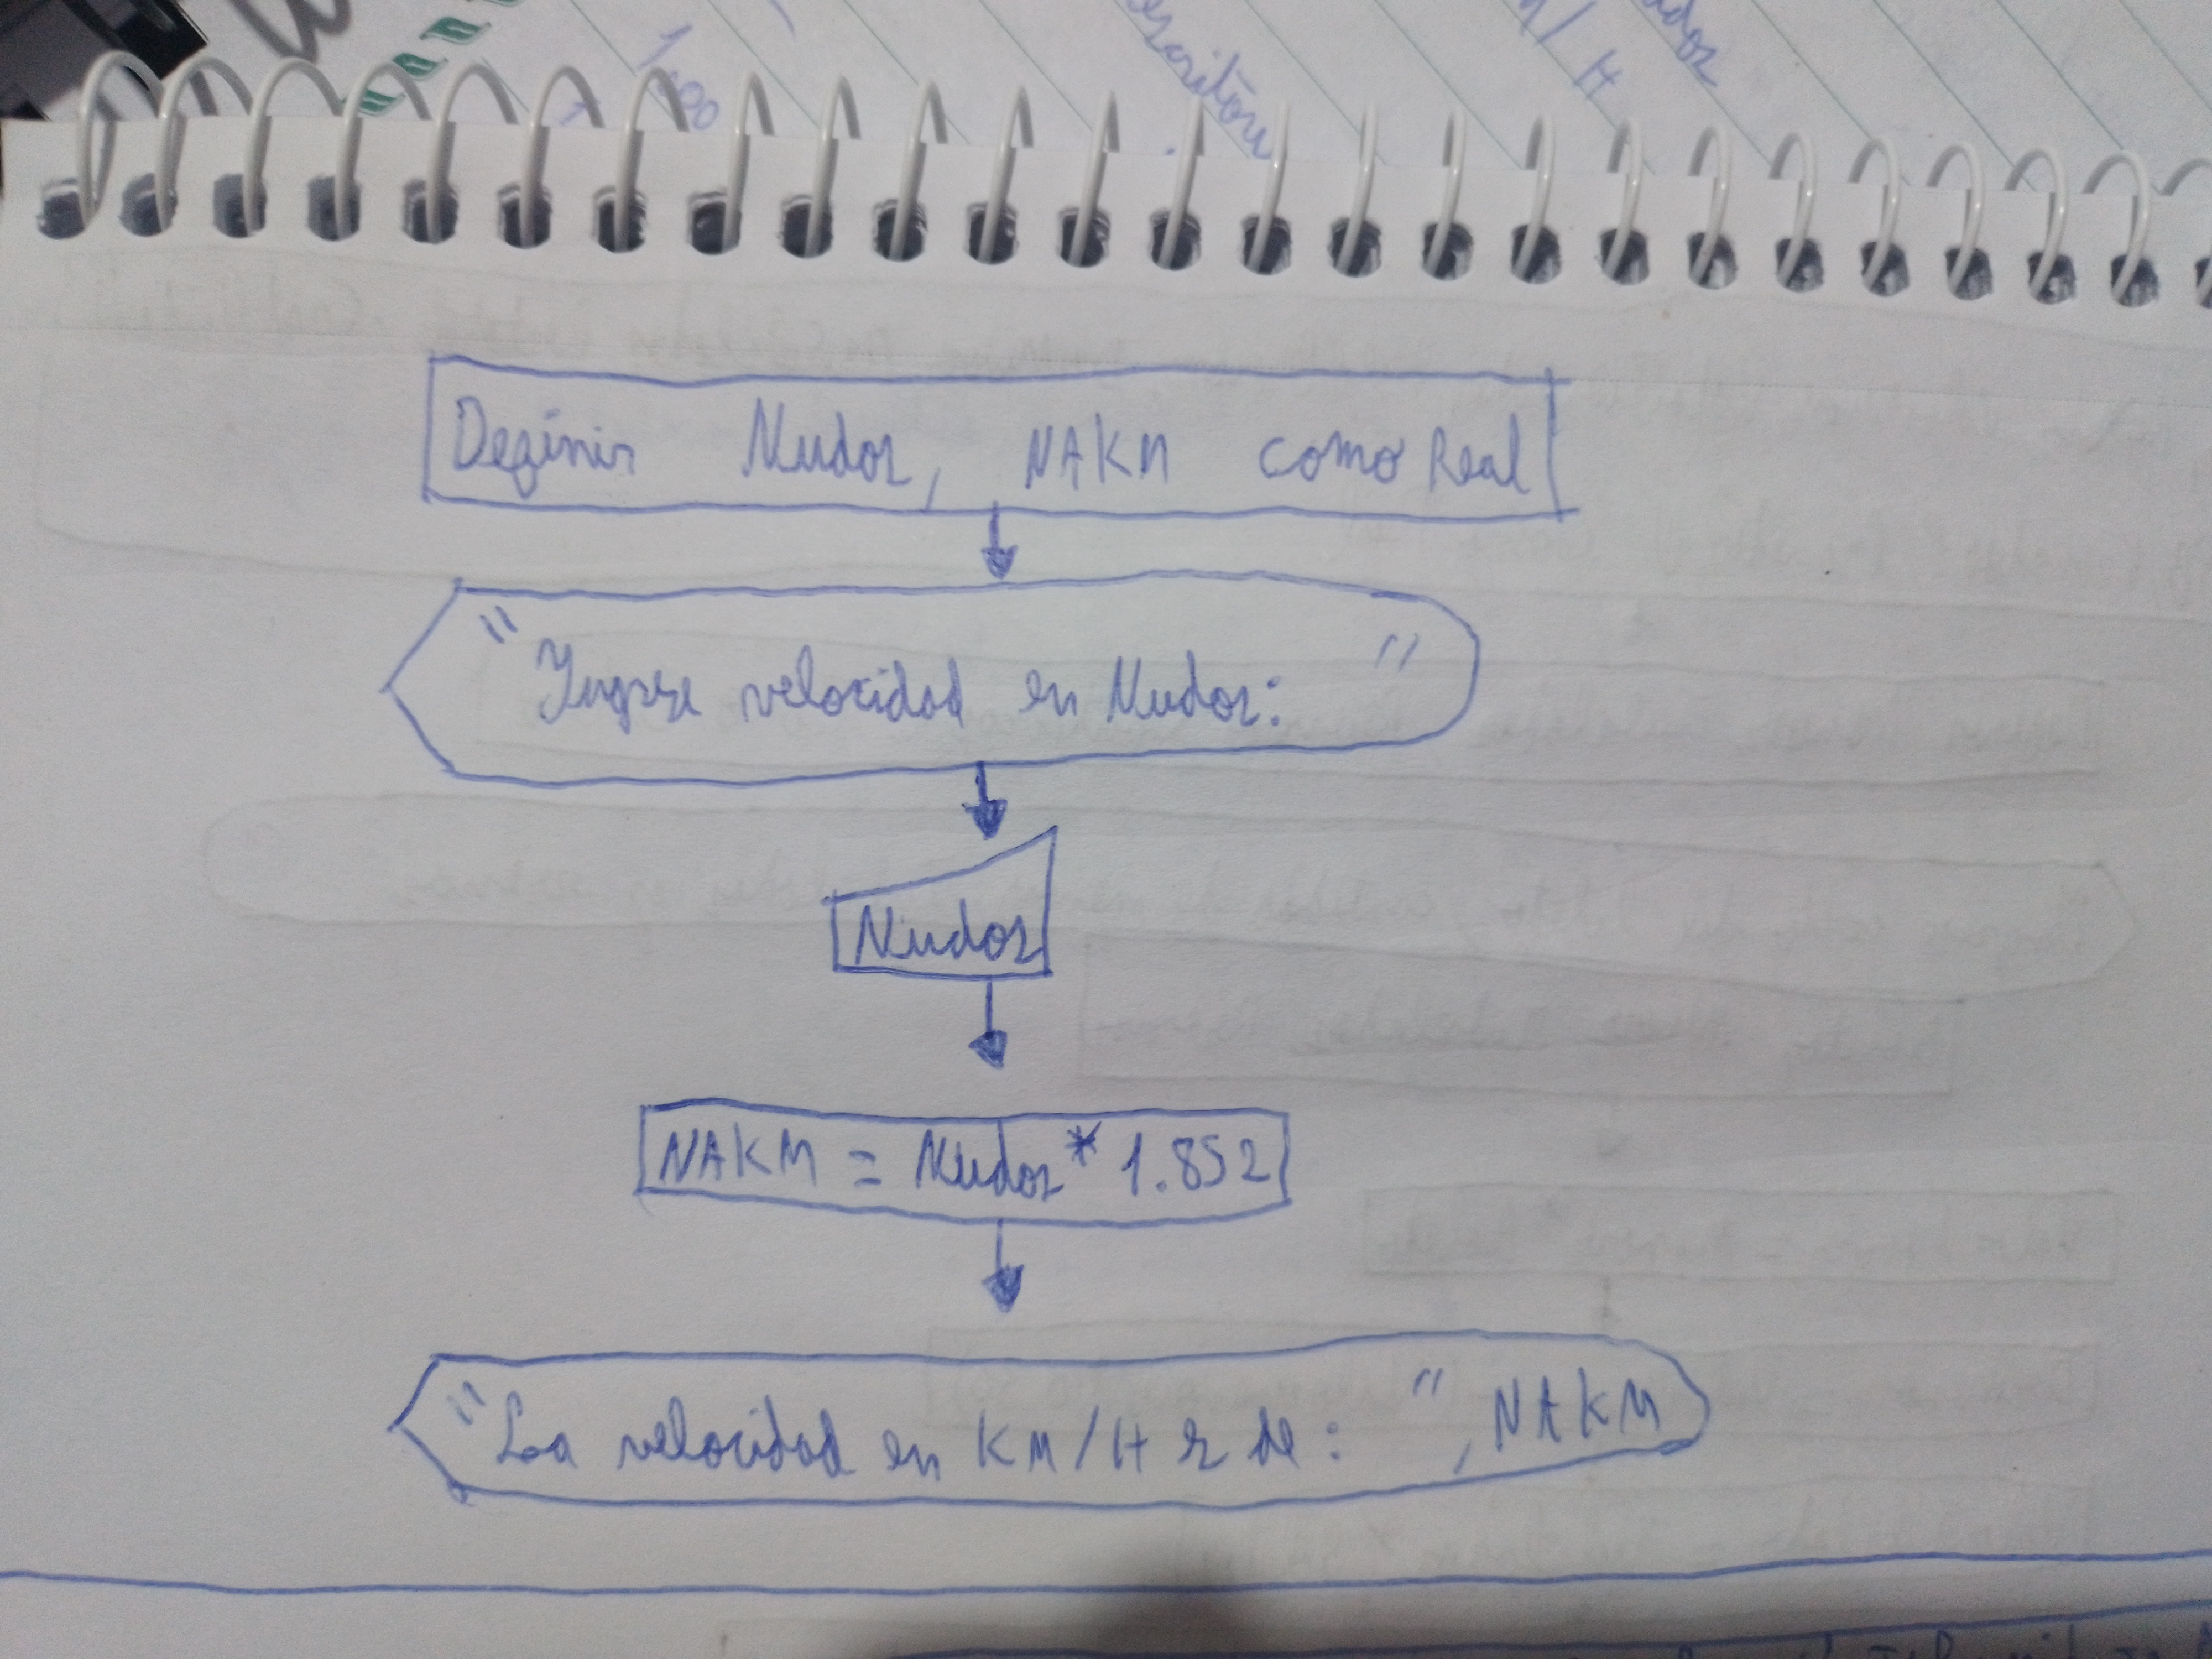 Definir Nudos, NAKM como Real
"Ingrese velocidad en Nudos: "
Nudos
NAKM = Nudos * 1.852
"La velocidad en KM/H es de: ", NAKM